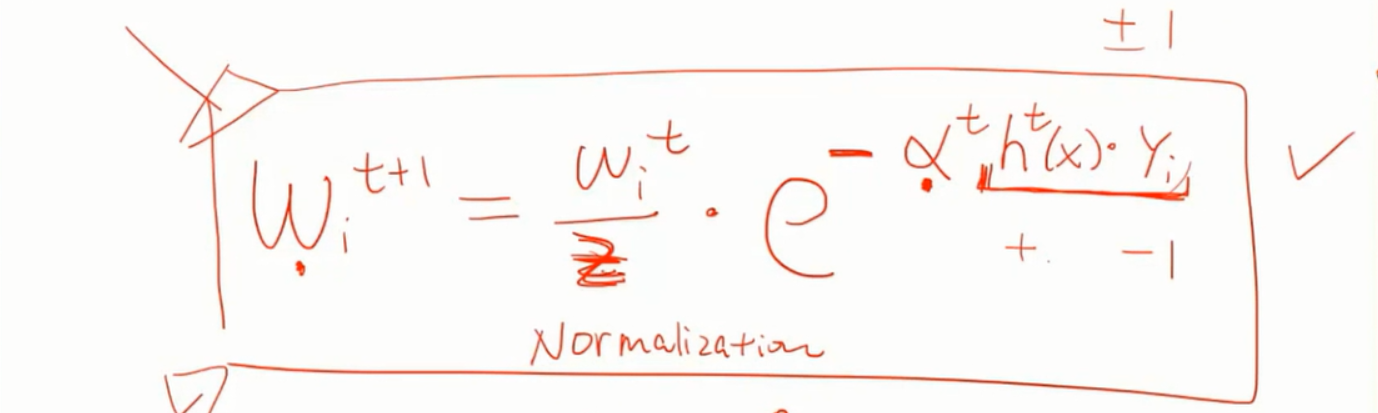 ± 1
w_i^{t+1} = \frac{w_i^t}{z} · e^{- α^t h^t(x) · y_i}
+. -1
Normalization